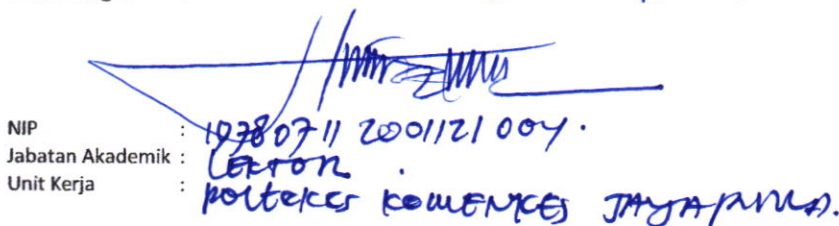 NIP : 19780711 2001121 004.
Jabatan Akademik : LEKTOR.
Unit Kerja : POLTEKES KEMENKES JAYAPURA.